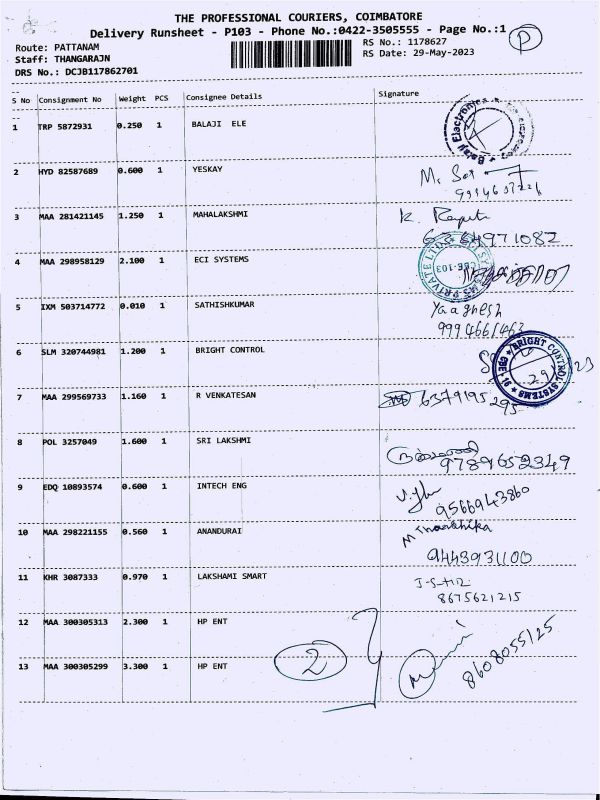 THE PROFESSIONAL COURIERS, COIMBATORE
Delivery Runsheet - P103 - Phone No.:0422-3505555 - Page No.:1
P
Route: PATTANAM
Staff: THANGARAJN
DRS No.: DCJB117862701
RS No.: 1178627
RS Date: 29-May-2023
S No Consignment No Weight PCS Consignee Details Signature
1 TRP 5872931 0.250 1 BALAJI ELE
2 HYD 82587689 0.600 1 YESKAY
3 MAA 281421145 1.250 1 MAHALAKSHMI
4 MAA 298958129 2.100 1 ECI SYSTEMS
5 IXM 503714772 0.010 1 SATHISHKUMAR Yaaghesh
9994661463
6 SLM 320744981 1.200 1 BRIGHT CONTROL BRIGHT CONTROL SYSTEMS
7 MAA 299569733 1.160 1 R VENKATESAN 6379195295
8 POL 3257049 1.600 1 SRI LAKSHMI
9789652349
9 EDQ 10893574 0.600 1 INTECH ENG
9566943860
10 MAA 298221155 0.560 1 ANANDURAI M Tharkhika
9443931100
11 KHR 3087333 0.970 1 LAKSHAMI SMART
8675621215
12 MAA 300305313 2.300 1 HP ENT
13 MAA 300305299 3.300 1 HP ENT 2 8608055125